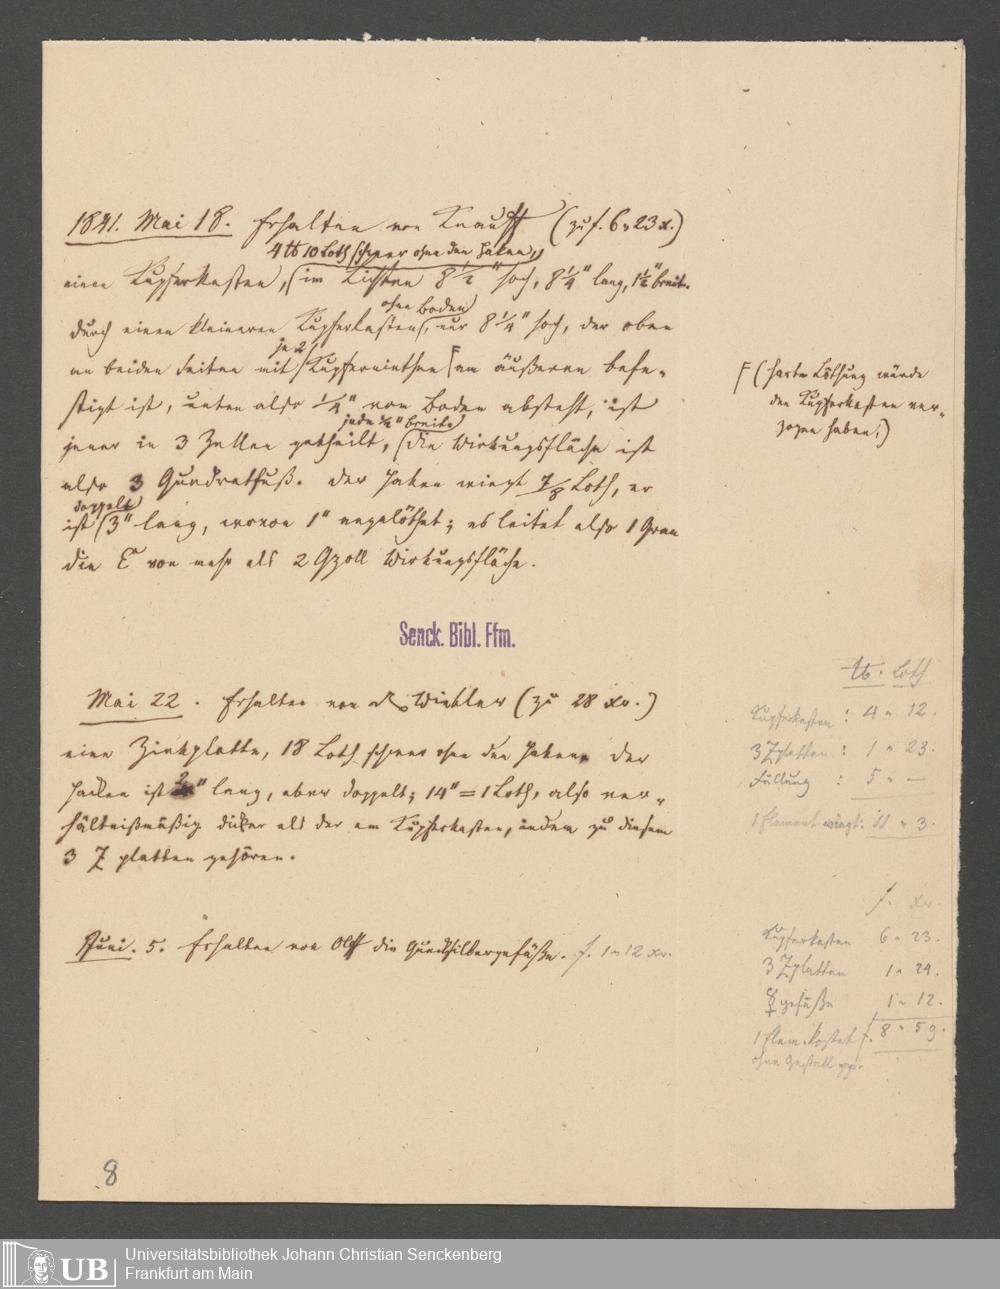 1841. Mai 18. Erhalten von Knauff (zu f. 6 „ 23 x.)
4 ℔ 10 Loth schwer ohne den Haken,
einen Kupferkasten, (im Lichten 8 1/2" hoch, 8 1/4" lang, 1 1/2" breit.
ohne Boden
durch einen kleineren Kupferkasten, nur 8 1/4" hoch, der oben
je 2
an beiden Seiten mit Kupfernieten F am äußeren befe-
stigt ist, unten also 1/4" vom Boden absteht, ist
jede 1/2" breite
jener in 3 Zellen getheilt, (die Wirkungsfläche ist
also 3 Quadratfuß. Der Haken wiegt 7/8 Loth, er
doppelt
ist (3" lang, wovon 1" angelöthet; es leitet also 1 Gran
die E von mehr als 2 Qzoll Wirkungsfläche.
F (harte Löthung würde
den Kupferkasten ver-
zogen haben,)
Senck. Bibl. Ffm.
Mai 22. Erhalten von Winkler (zu 28 xr.)
eine Zinkplatte, 18 Loth schwer ohne den Haken. Der
Hacken ist 2" lang, aber doppelt; 14" = 1 Loth, also ver-
hältnißmäßig dicker als der am Kupferkasten, indem zu diesem
3 Z platten gehören.
℔. Loth
Kupferkasten : 4 „ 12.
3 Zplatten : 1 „ 23.
Füllung : 5 „ —
1 Element wiegt: 11 „ 3.
Juni. 5. Erhalten von Olff die Quecksilbergefäße. f. 1 „ 12 xr.
f. xr.
Kupferkasten 6 „ 23.
3 Zplatten 1 „ 24.
☿ gefäße 1 „ 12.
1 Elem. kostet f. 8 „ 59.
ohne Gestell pp.
8
UB
Universitätsbibliothek Johann Christian Senckenberg
Frankfurt am Main